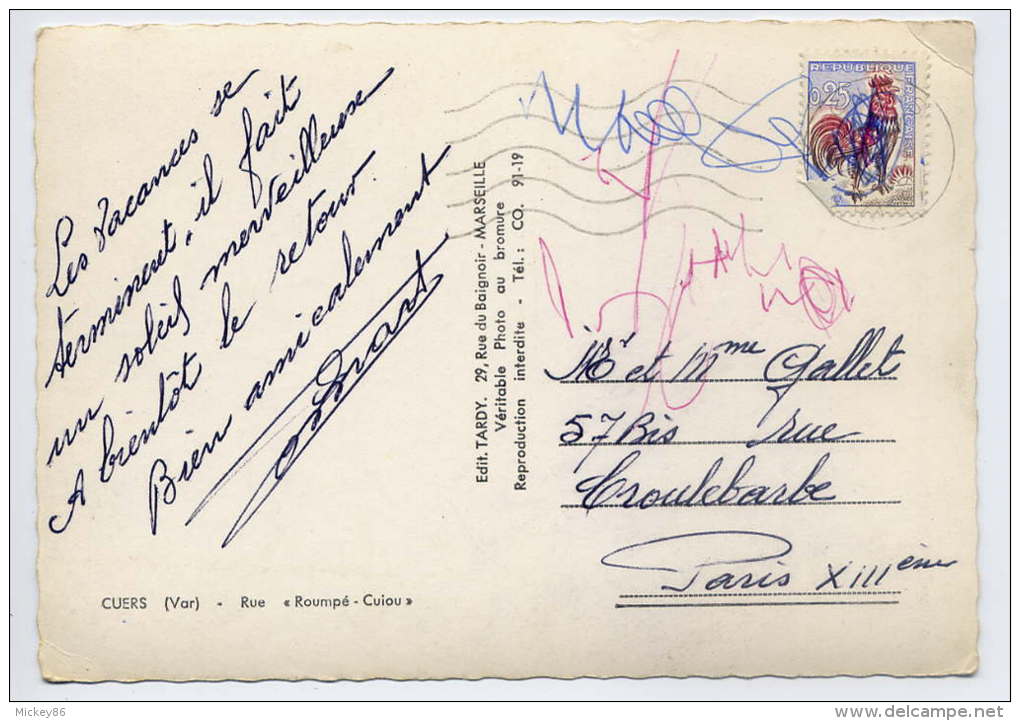 Les vacances se
terminent, il fait
un soleil merveilleuse
A bientôt le retour.
Bien amicalement
Edit. TARDY. 29, Rue du Baignoir - MARSEILLE
Véritable Photo au bromure
Reproduction interdite - Tél. : CO. 91-19
REPUBLIQUE FRANÇAISE
0,25
Mr et Mme Gallet
57 Bis rue
Croulebarbe
Paris XIIIème
CUERS (Var) - Rue « Roumpé - Cuiou »
Mickey86
www.delcampe.net